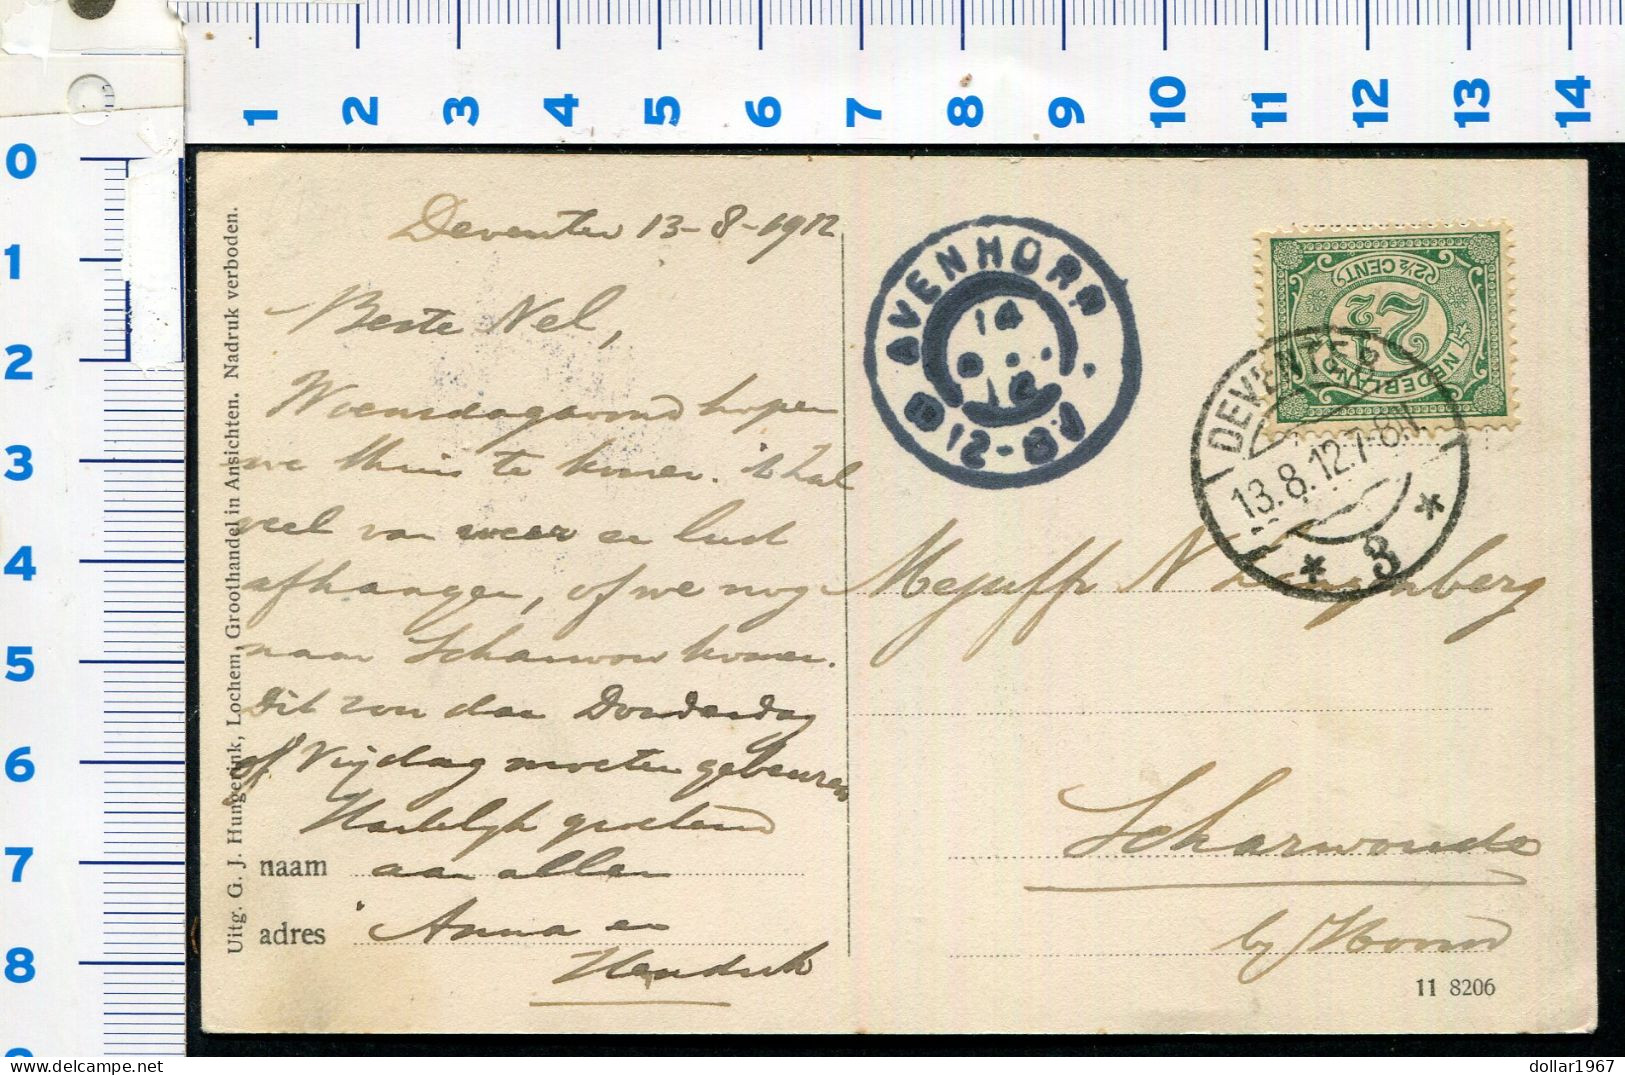 1 2 3 4 5 6 7 8 9 10 11 12 13 14
0
1
2
3
4
5
6
7
8
Uitg. G. J. Hungerink, Lochem, Groothandel in Ansichten. Nadruk verboden.
Deventer 13-8-1912
Beste Nel,
Woensdagavond hopen
we thuis te komen. 't Zal
veel van weer en lust
afhangen, of we nog
naar Scharwou komen.
Dit zou dan Donderdag
of Vrijdag moeten gebeuren
Hartelijk groetend
naam aan allen
adres Anna en
Hendrik
AVENHORN
14
8
12
12-8V
NEDERLAND
2½ CENT
2½
DEVENTER
13.8.12.7-8V.
* 3 *
Mejuffr N Langenberg
Scharwoude
by Hoorn
11 8206
dollar1967